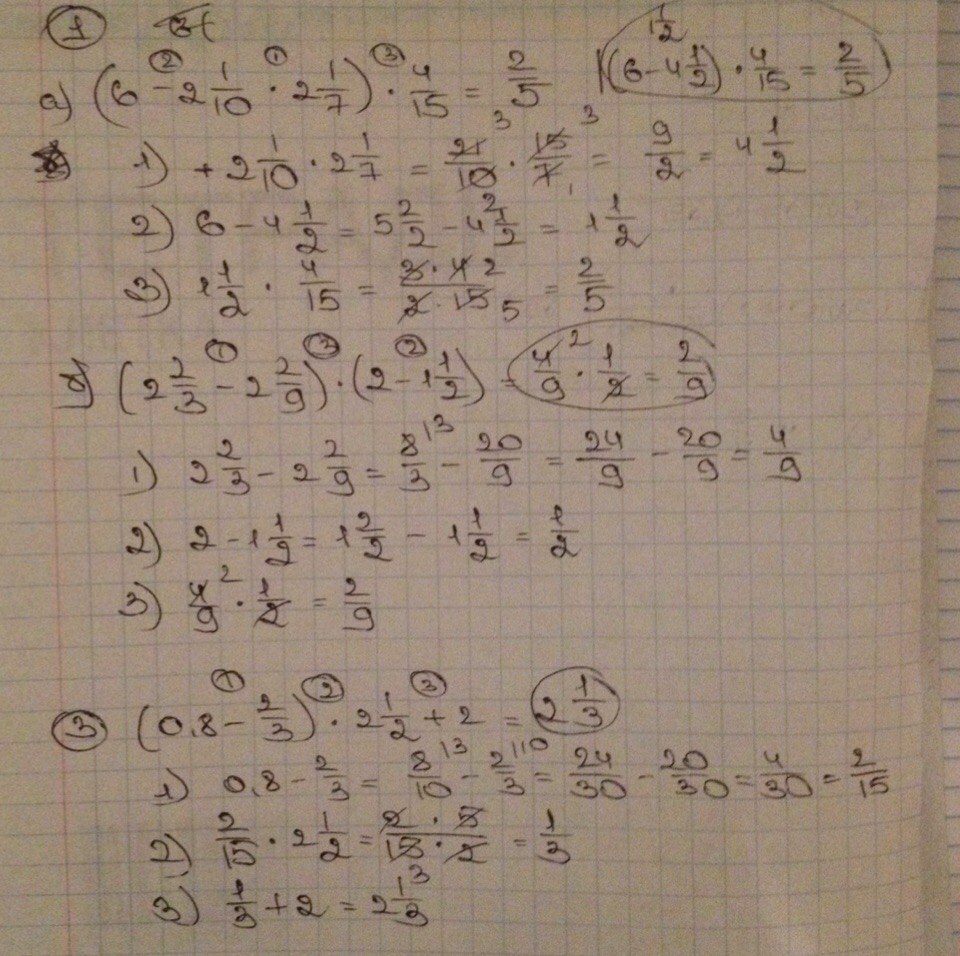 ①
а) (6 - 2 1/10 · 2 1/7) · 4/15 = 2/5 (6 - 4 1/2) · 4/15 = 2/5
1) + 2 1/10 · 2 1/7 = 21/10 · 15/7 = 9/2 = 4 1/2
2) 6 - 4 1/2 = 5 2/2 - 4 1/2 = 1 1/2
3) 1 1/2 · 4/15 = 3·4/2·15 = 2/5
(2 2/3 - 2 2/9) · (2 - 1 1/2) = 4/9 · 1/2 = 2/9
1) 2 2/3 - 2 2/9 = 8/3 - 20/9 = 24/9 - 20/9 = 4/9
2) 2 - 1 1/2 = 1 2/2 - 1 1/2 = 1/2
3) 4/9 · 1/2 = 2/9
③ (0,8 - 2/3) · 2 1/2 + 2 = 2 1/3
1) 0,8 - 2/3 = 8/10 - 2/3 = 24/30 - 20/30 = 4/30 = 2/15
2) 2/15 · 2 1/2 = 2·5/15·2 = 1/3
3) 1/3 + 2 = 2 1/3